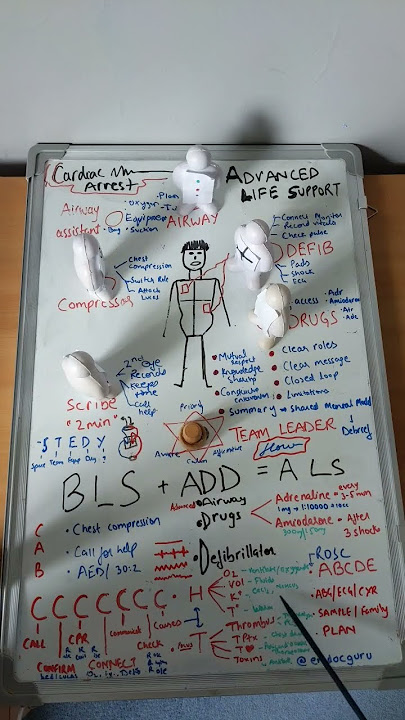 Cardiac Arrest
ADVANCED LIFE SUPPORT
Airway assistant
• Oxygen
Equipment
• Bag • Suction
AIRWAY
Connect Monitor
Record vitals
Check pulse
DEFIB
Pads
Shock
ECG
Chest compression
Switch Role
Attach Lucas
Compressor
access
• Adr
• Amiodarone
DRUGS
2nd eye
Records
Keeps time
Call help
Scribe
"2 min"
• Mutual respect
• Knowledge Sharing
• Constructive
• Summary → Shared Mental Model
• Clear roles
• Clear message
• Closed loop
• Limitations
Debrief
Priority
Aware
Calm
TEAM LEADER
flow
STEDY
Team
BLS + ADD = ALS
C • Chest compression
A • Call for help
B • AED/30:2
Advanced • Airway
• Drugs
• Defibrillator
Adrenaline every 3-5 min
1mg → 1:10000 = 10cc
Amiodarone • After 3 shocks
300mg/150mg
↑ROSC
• ABCDE
• ABG/ECG/CXR
• SAMPLE/Family
• PLAN
CCCCCCC • H
CALL
CPR
Communicate
Causes
Check
Pulse
CONFIRM
CONNECT
O₂
Vol
K⁺
T°
T
Thrombus
TPtx
T♥
Toxins
Fluids
@endocguru